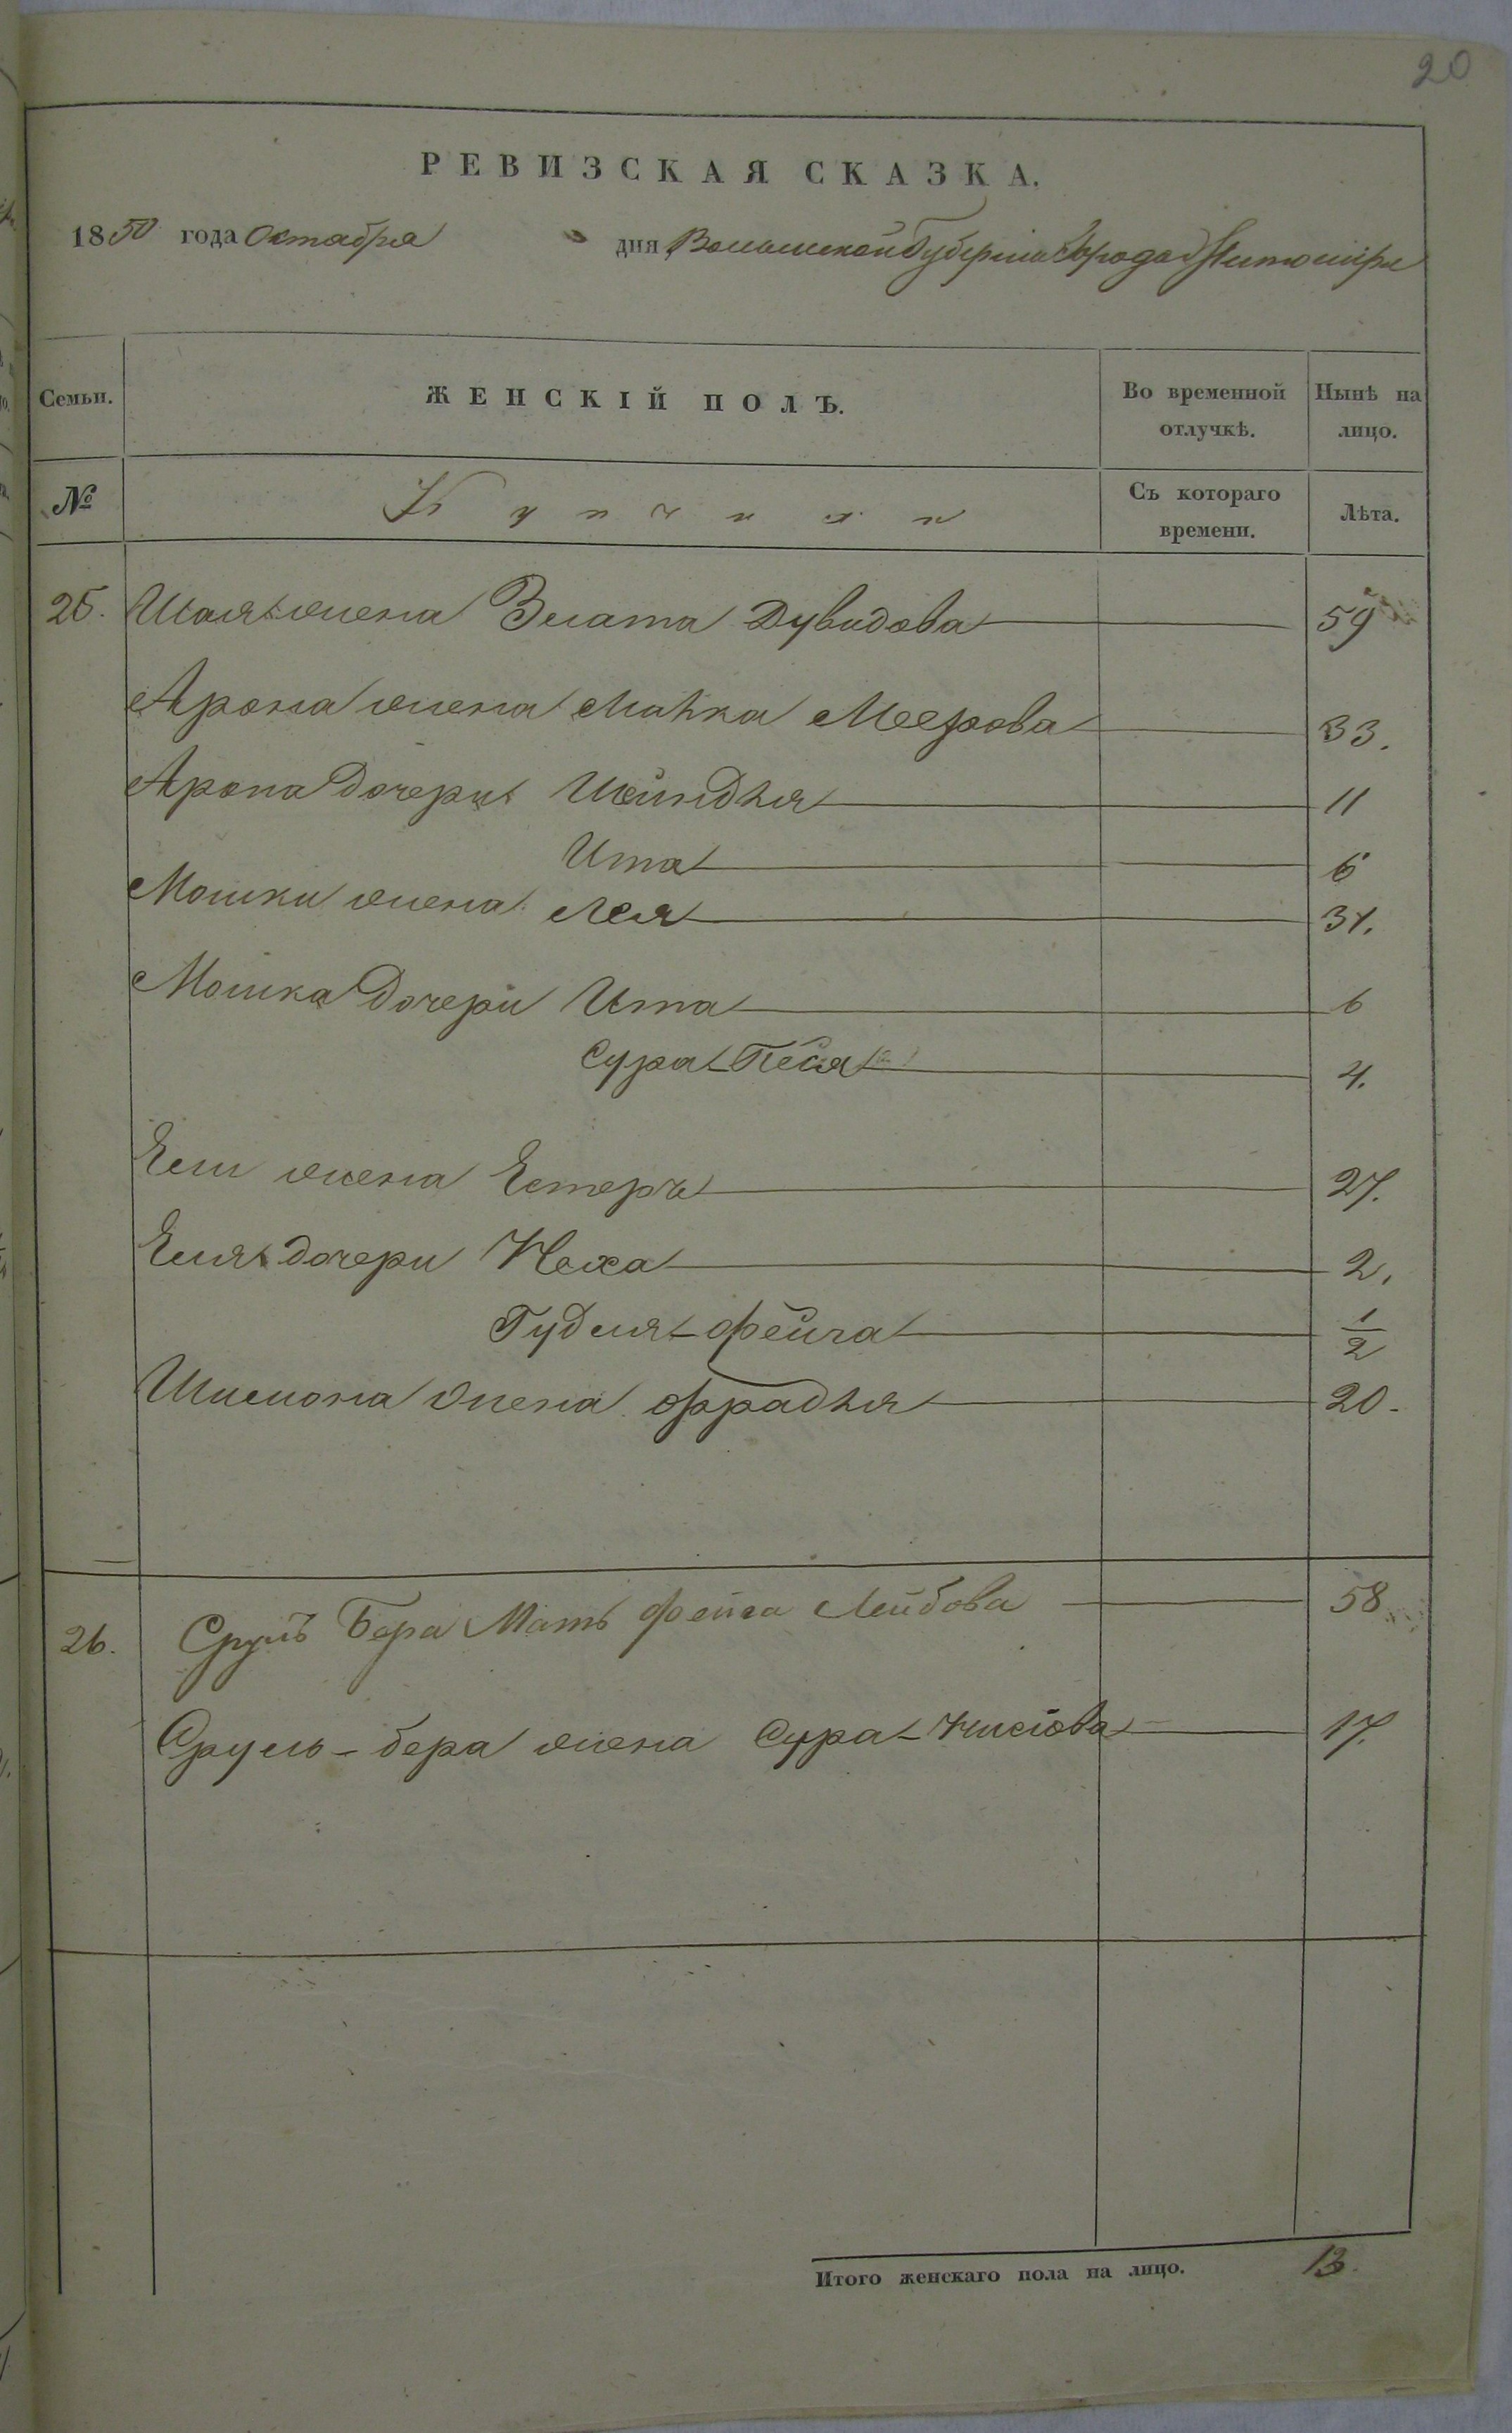 20
РЕВИЗСКАЯ СКАЗКА.
1850 года Октября дня Волынской Губерніи Города Житоміра
Семьи. ЖЕНСКІЙ ПОЛЪ. Во временной отлучкѣ. Нынѣ на лицо.
№ Купчихи Съ котораго времени. Лѣта.
25. жена Злата Дувидова 59
Арона жена Маhка Меерова 33.
Арона дочери Шейндhля 11
Ита 6
Мошки жена Лея 31.
Мошка дочери Ита 6
Сура-Песя 4.
Ели жена Естеръ 27.
Еля дочери Неха 2.
Гудля-Фейга 1/2
Шилиона жена Фрадhля 20.
26. Сруль Бера Мать Фейга Лейбова 58
Сруль-бера жена Сура 17.
Итого женскаго пола на лицо. 13.